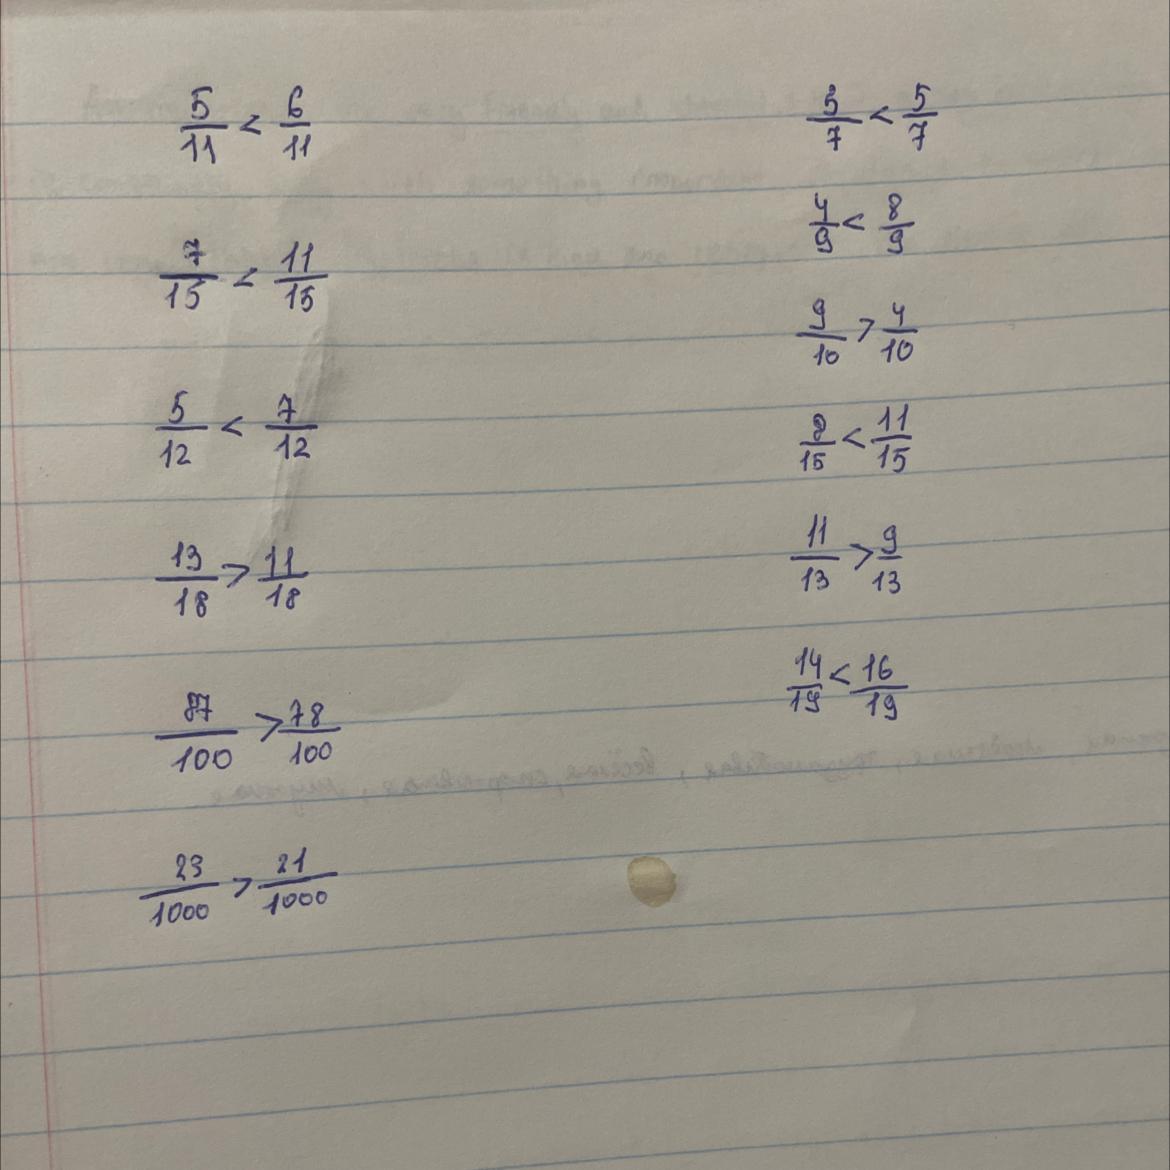 5/11 < 6/11
7/15 < 11/15
5/12 < 7/12
13/18 > 11/18
87/100 > 78/100
23/1000 > 21/1000
3/7 < 5/7
4/9 < 8/9
9/10 > 4/10
8/15 < 11/15
11/13 > 9/13
14/19 < 16/19